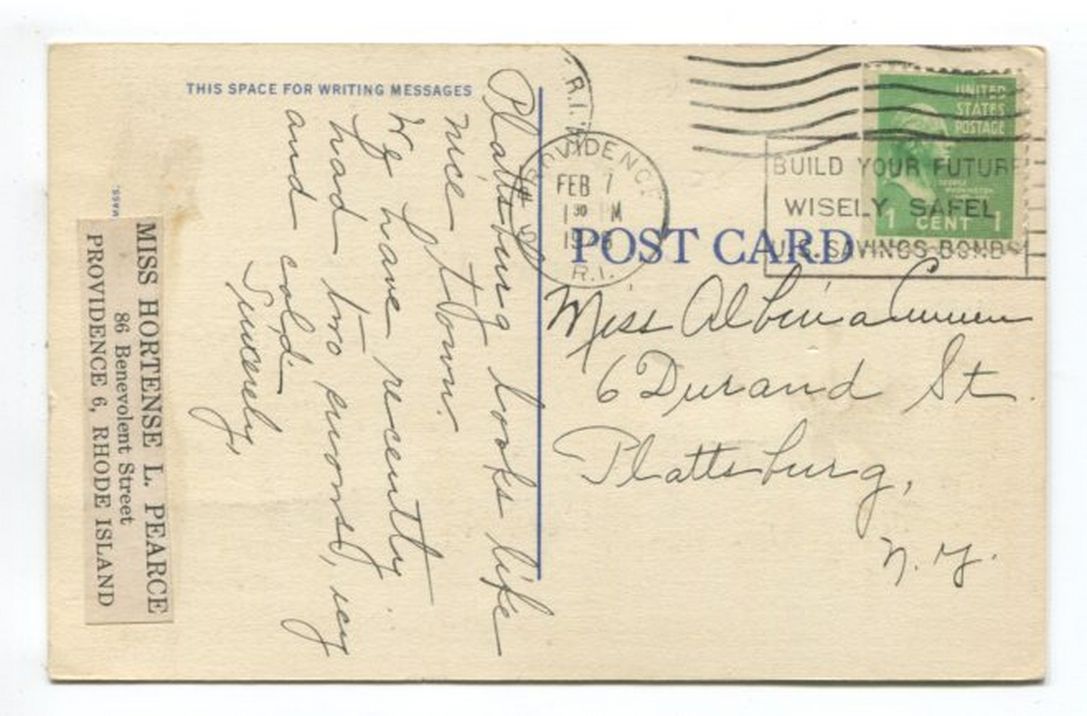 THIS SPACE FOR WRITING MESSAGES
Plattsburg looks like
nice town.
We have recently
had two snows, icy
and cold.
Sincerely,
MISS HORTENSE L. PEARCE
86 Benevolent Street
PROVIDENCE 6, RHODE ISLAND
MASS.
R.I.
PROVIDENCE
FEB 7
1 30 PM
R.I.
UNITED
STATES
POSTAGE
GEORGE
WASHINGTON
1 CENT 1
BUILD YOUR FUTURE
WISELY SAFEL
U.S. SAVINGS BONDS
POST CARD
Miss Albina
6 Durand St.
Plattsburg,
N.Y.